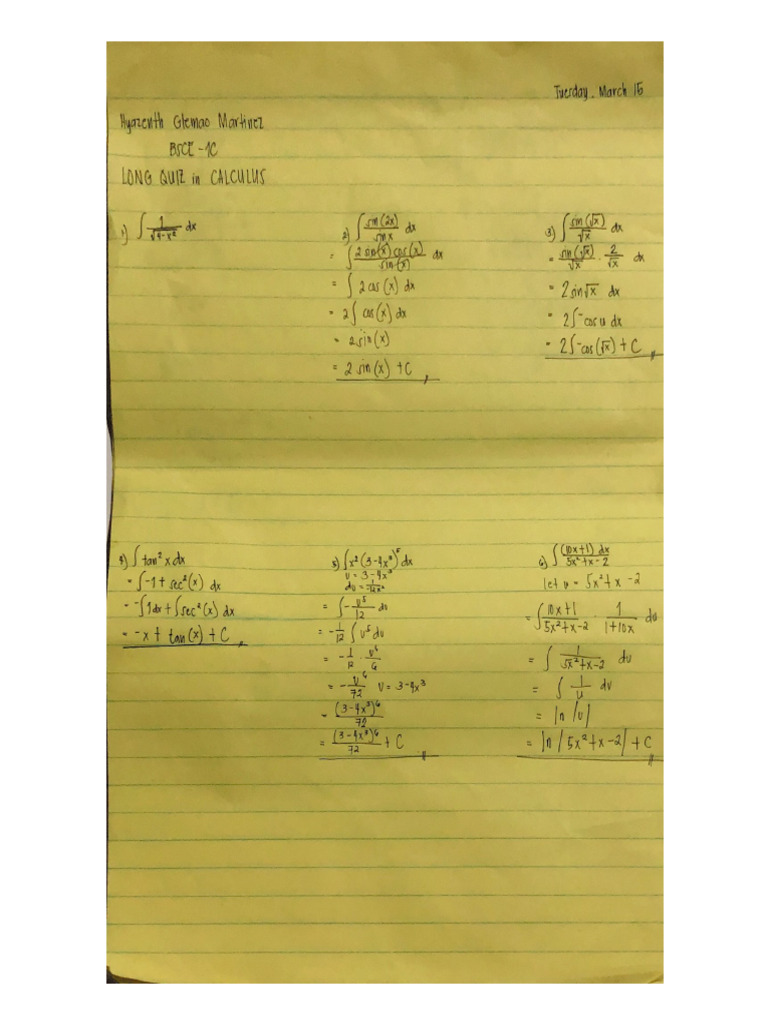 Tuesday, March 15
Hyazenth Glemao Martinez
BSCE -1C
LONG QUIZ in CALCULUS
1) ∫ 1/√(4-x²) dx
2) ∫ sin(2x)/sin x dx
= ∫ 2 sin(x) cos(x)/sin(x) dx
= ∫ 2 cos(x) dx
= 2∫ cos(x) dx
= 2 sin(x)
= 2 sin(x) + C
3) ∫ sin(√x)/√x dx
= sin(√x)/√x · 2/√x dx
= 2 sin√x dx
= 2∫ -cos u dx
= 2∫ -cos(√x) + C
∫ tan² x dx
= ∫ -1 + sec²(x) dx
= -∫ 1dx + ∫ sec²(x) dx
= -x + tan(x) + C
∫ x² (3-4x³)⁵ dx
u = 3-4x³
du = 1/-12x²
= ∫ - u⁵/12 du
= -1/12 ∫ u⁵ du
= -1/12 · u⁶/6
= - u⁶/72 u = 3-4x³
= -(3-4x³)⁶/72
= -(3-4x³)⁶/72 + C
6) ∫ (10x+1) dx/5x²+x-2
let u = 5x²+x-2
= ∫ 10x+1/5x²+x-2 1/1+10x du
= ∫ 1/5x²+x-2 du
= ∫ 1/u du
= ln |u|
= ln |5x²+x-2| + C